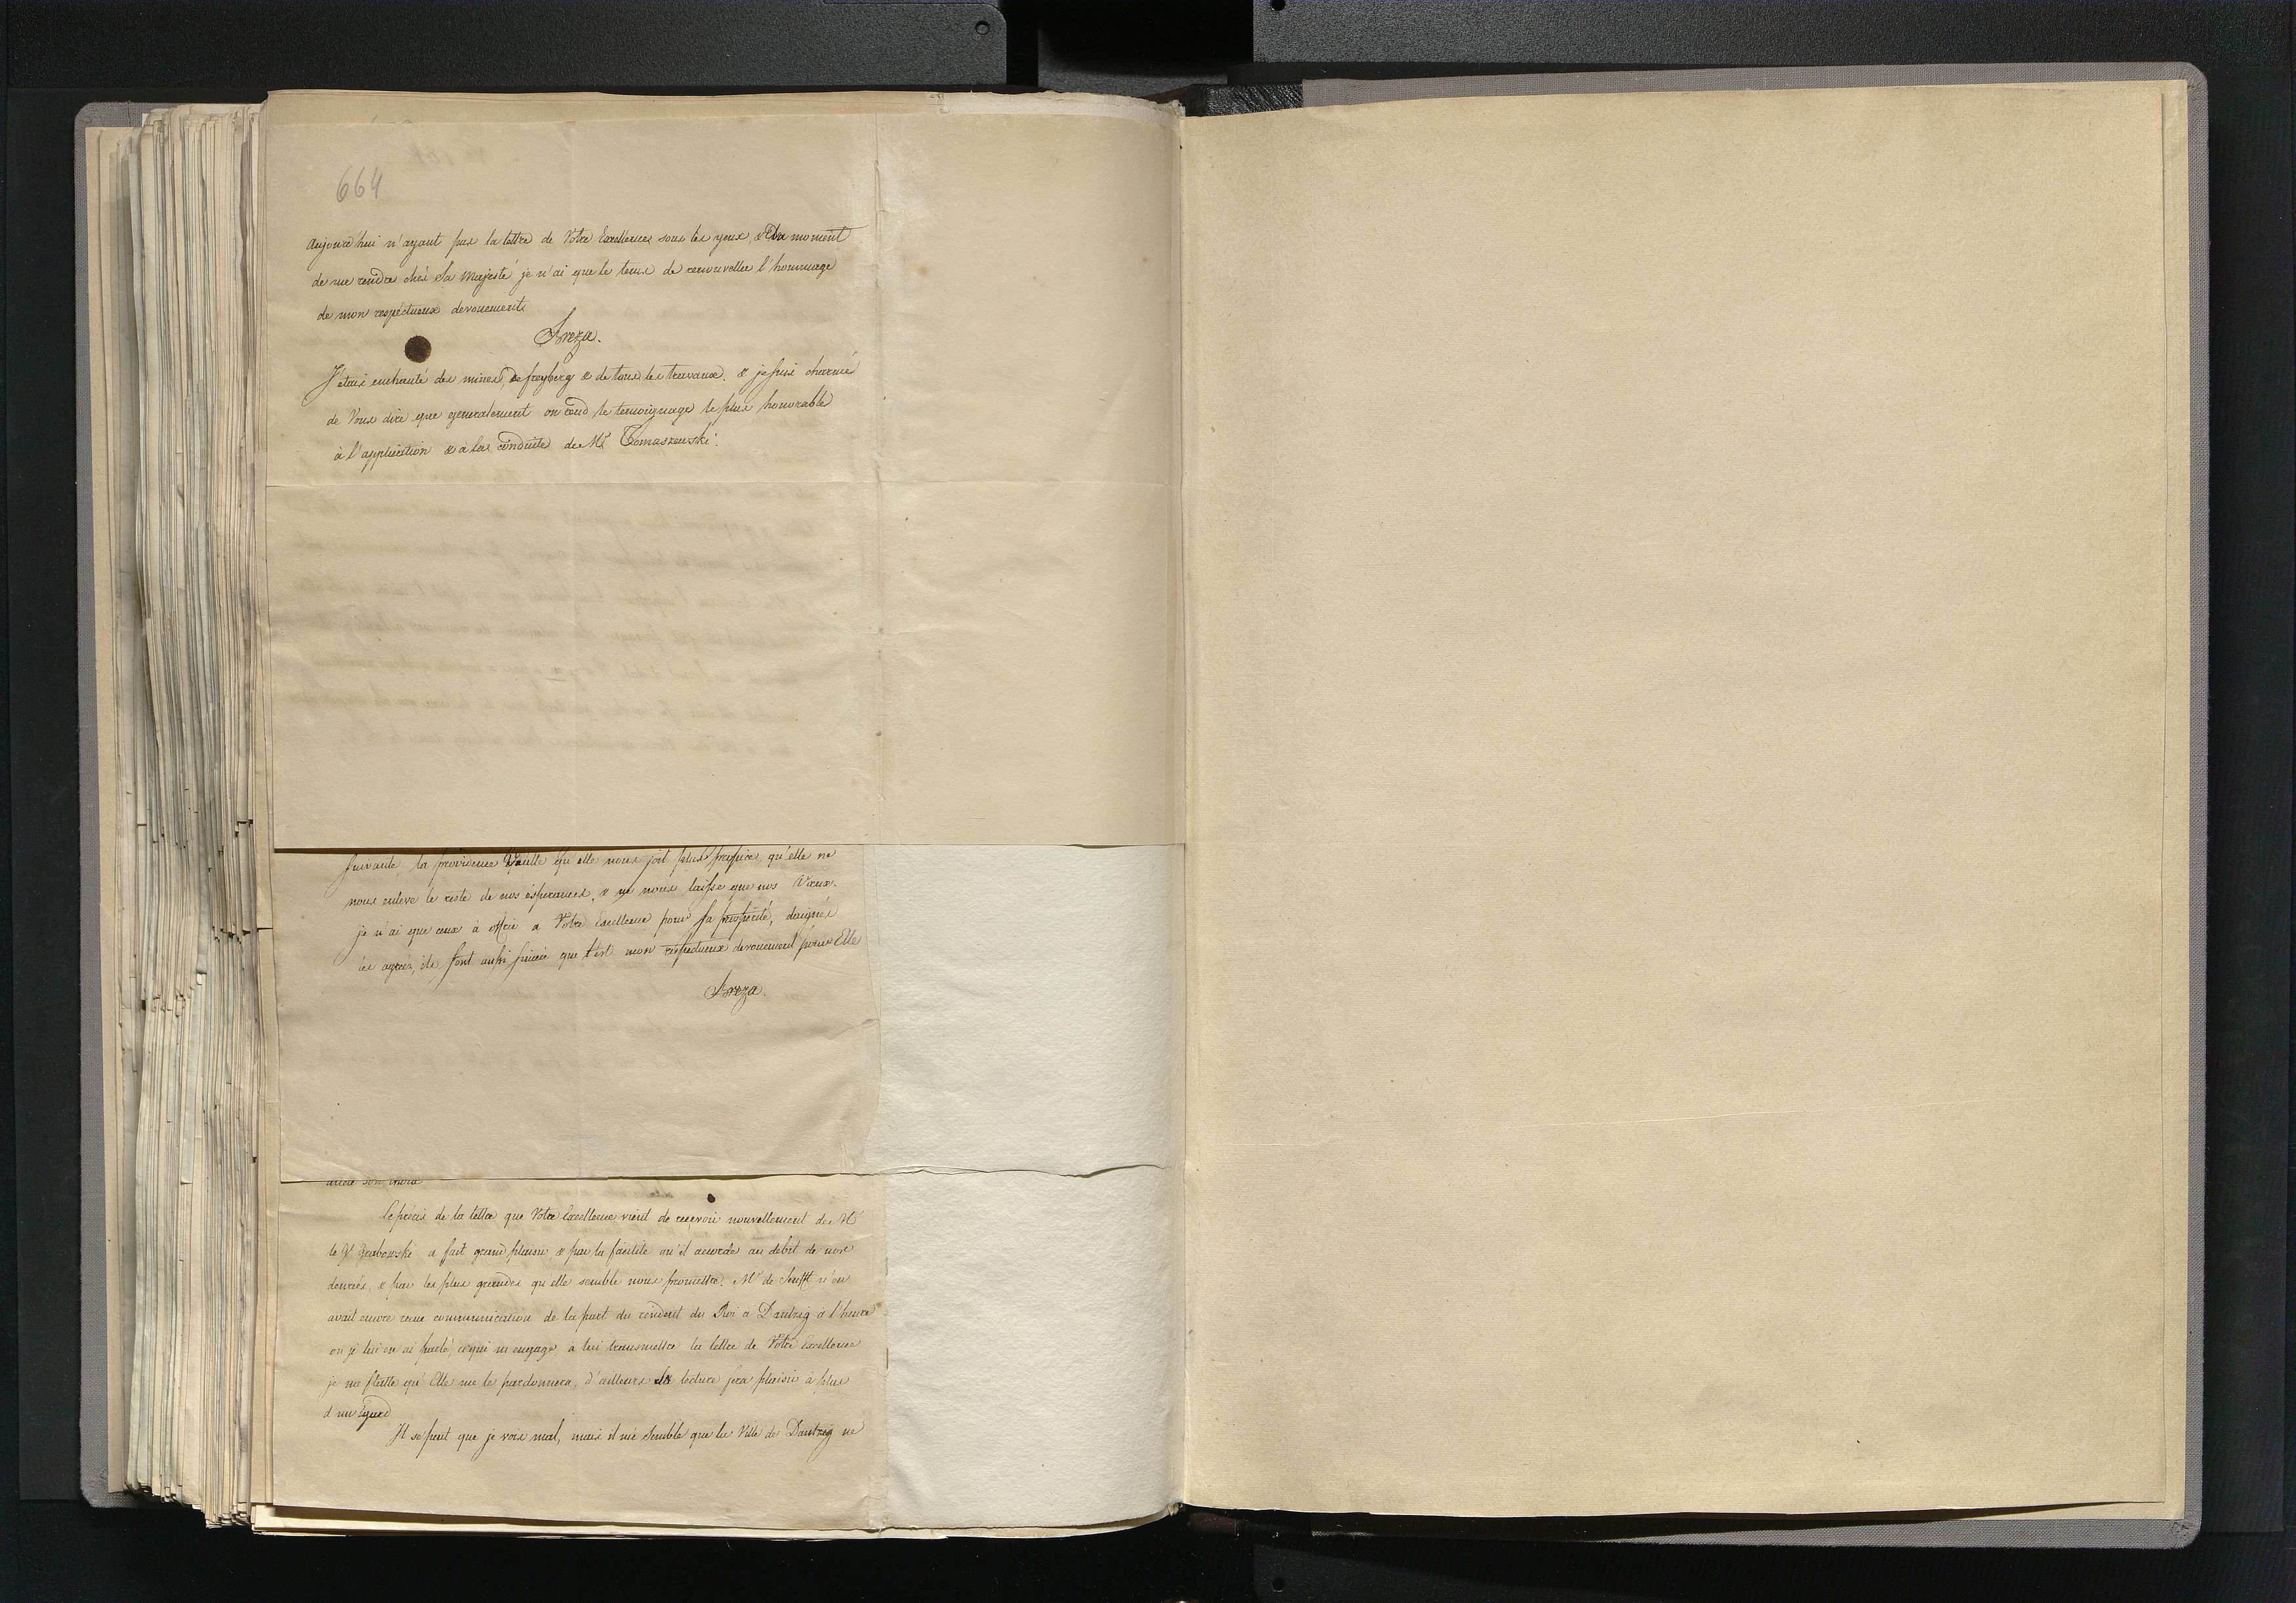 664
aujourd'hui n'ayant pas la lettre de Votre Excellence sous les yeux, & au moment
de me rendre chés Sa Majesté je n'ai que le tems de renouveller l'hommage
de mon respéctueux devouement
Breza.
J'etais enchanté des mines de freyberg & de tous les travaux. & je suis charmé
de Vous dire que generalement on rend le temoignage le plus honorable
à l'application & à la conduite de Mr Tomaszewski.
suivante la providence Veuille qu'elle nous soit plus propice, qu'elle ne
nous enleve le reste de nos ésperances, & ne nous laisse que nos Vœux.
je n'ai que ceux à offrir a Votre Excellence pour sa prosperité, daignés
les agréer, ils sont aussi sincere que l'est mon respectueux devouement pour Elle
Breza.
Le précis de la lettre que Votre Excellence vient de recevoir nouvellement de Mr
le Gl Grabowski a fait grand plaisir & par la facilité qu'il accorde au debit de nos
denreés, & par les plus grandes qu'elle semble nous promettre. Mr de Senfft n'en
avait encore reçue communication de la part du résident du Roi a Dantzig à l'heure
ou je lui en ai parlé, ce qui m'engage à lui transmettre la lettre de Votre Excellence
je me flatte qu'Elle me le pardonnera, d'ailleurs sa lecture fera plaisir à plus
d'un égard
Il se peut que je vois mal, mais il me semble que la Ville de Dantzig ne